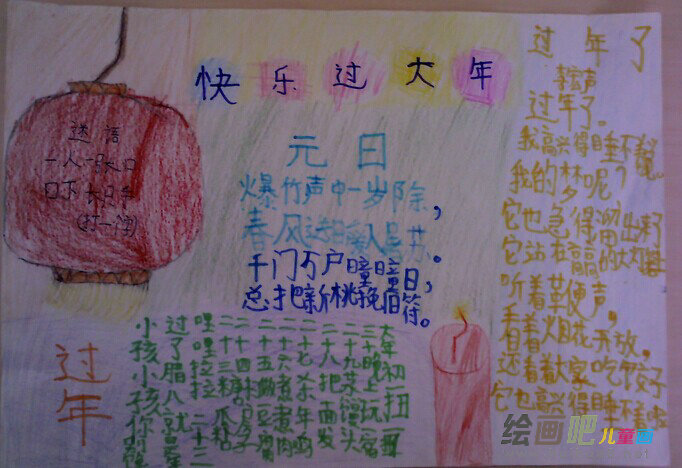 快乐过大年
谜语
一人一张口
口下长只手
(打一字)
元日
爆竹声中一岁除，
春风送暖入屠苏。
千门万户曈曈日，
总把新桃换旧符。
过年了
过年了。
我高兴得睡不着
我的梦呢？
它也急得溜出来了
它站在高高的
听着鞭炮声，
看着烟花开放，
还看着大家吃饺子
它也高兴得睡不着啦
过年
小孩小孩你
过了腊八就是年
哩哩拉拉二十三
二十三糖瓜粘
二十四扫房子
二十五做豆腐
二十六煮煮肉
二十七杀年鸡
二十八把面发
二十九蒸馒头
三十晚上玩一宿
大年初一扭一扭
绘画吧儿童画